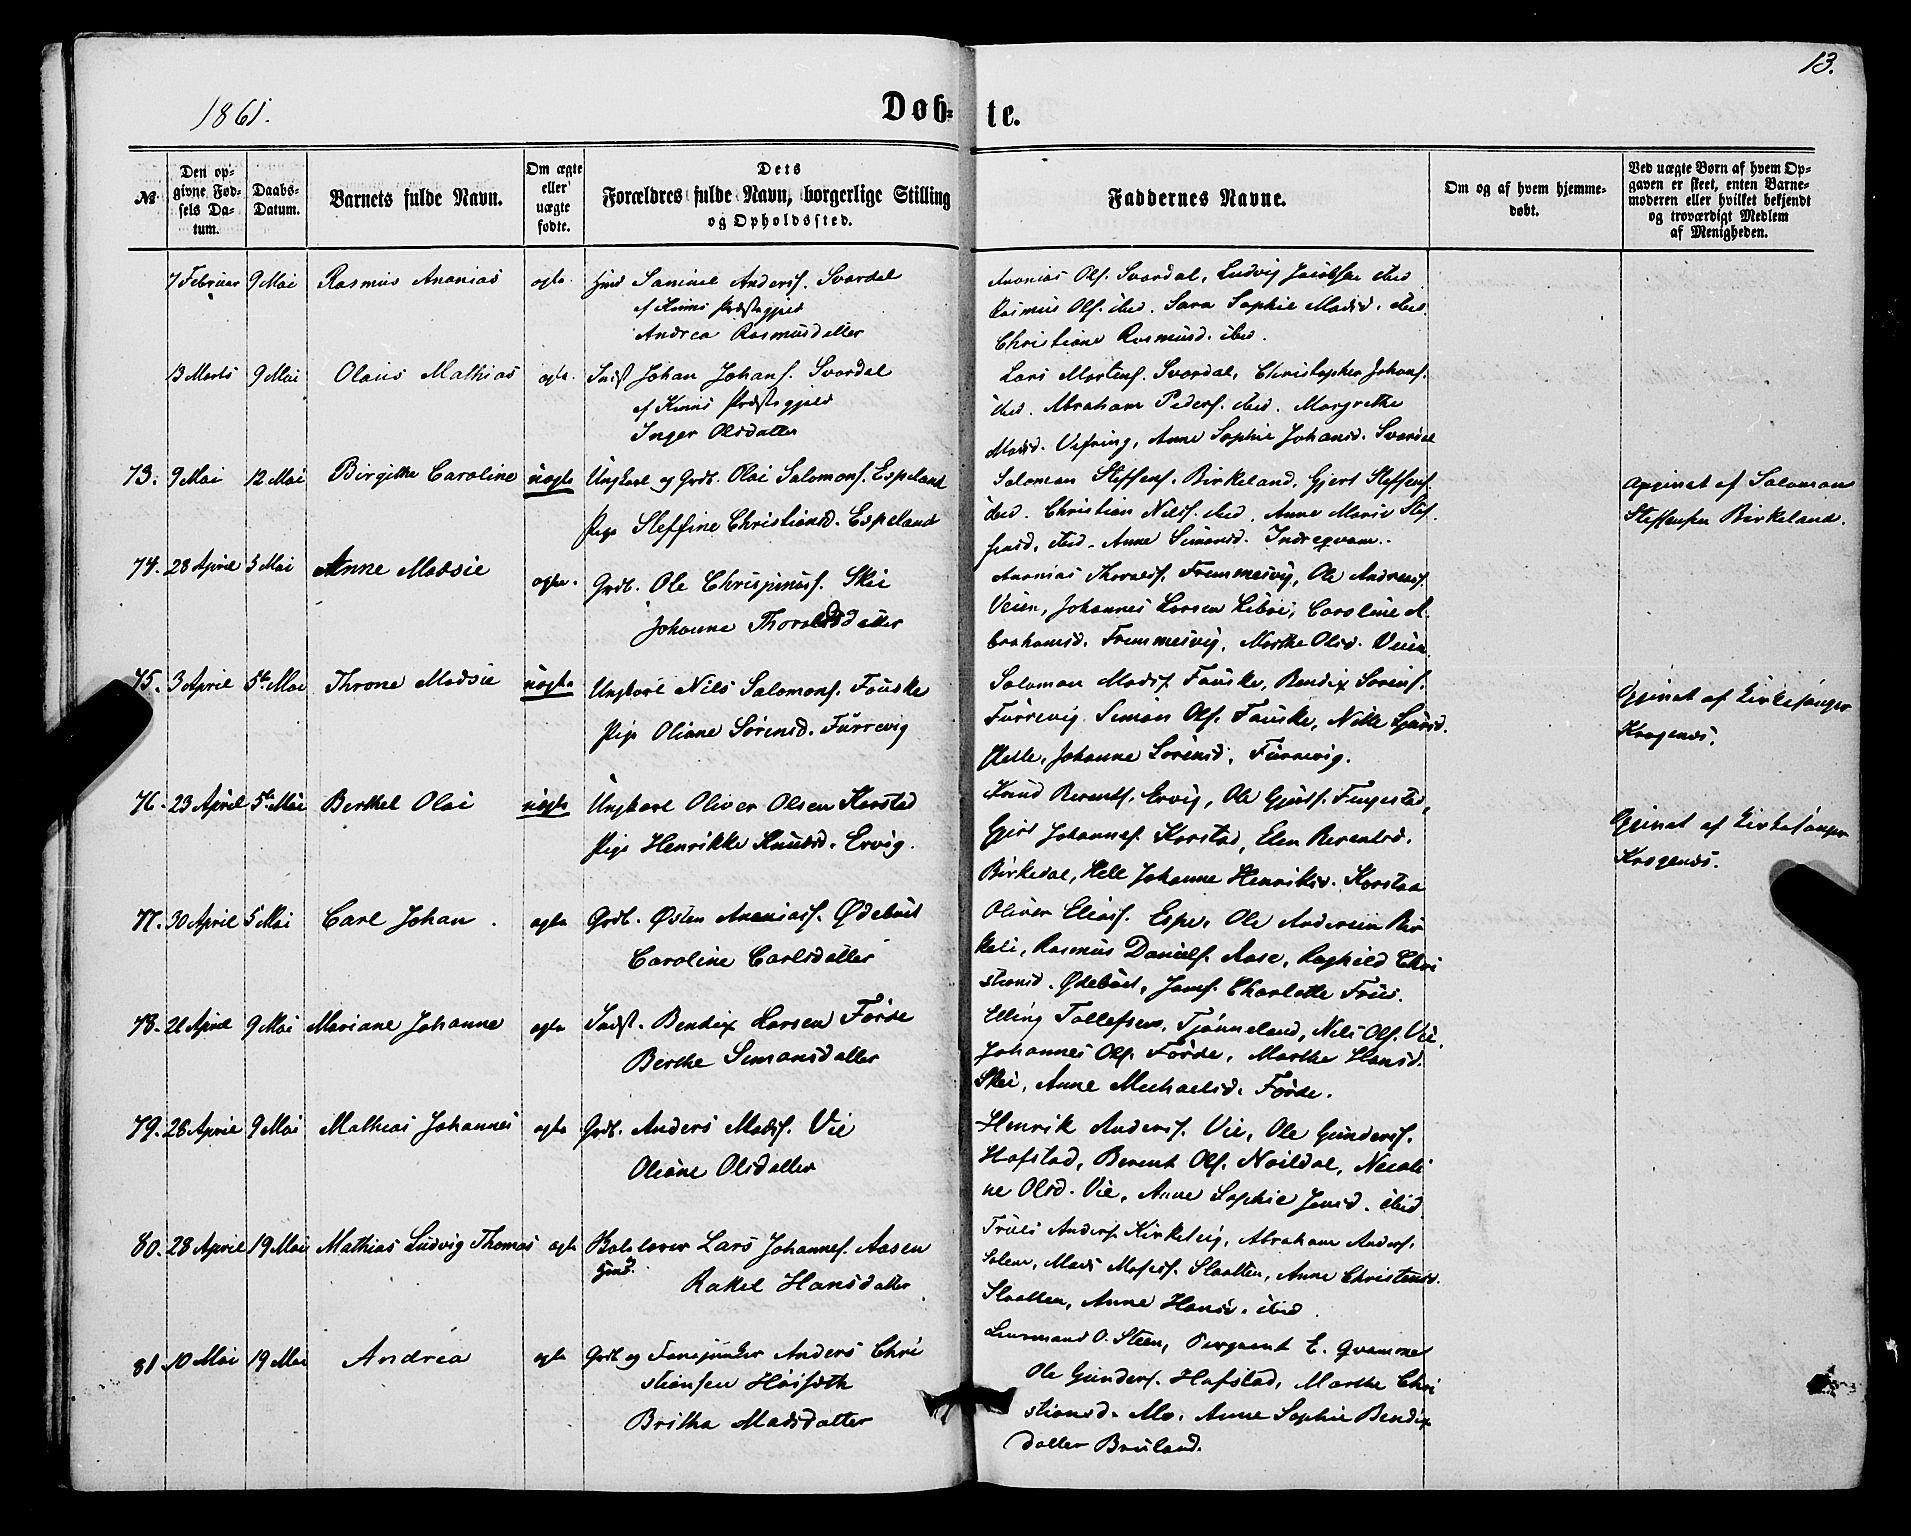 13.
1861.
Døb- te.
№
Den opgivne Fødsels Datum.
Daabs-Datum.
Barnets fulde Navn.
Om ægte eller uægte fødte.
Dets Forældres fulde Navn, borgerlige Stilling og Opholdssted.
Faddernes Navne.
Om og af hvem hjemmedøbt.
Ved uægte Børn af hvem Opgaven er skeet, enten Barnemoderen eller hvilket bekjendt og troværdigt Medlem af Menigheden.
7 Februar 9 Mai Rasmus Ananias ægte Hmd Samuel Anders. Svardal
af Kinns Præstegjeld
Andrea Rasmusdatter
Ananias Ols. Svardal, Ludvig Jacobsen ibid
Rasmus Ols. ibid. Sara Sophie Madsd. ibid
Christiane Rasmusd. ibid.
13 Marts 9 Mai Olaus Mathias ægte Indst Johan Johans. Svardal
af Kinns Præstegjeld
Inger Olsdatter
Lars Mortens. Svardal, Christopher Johans.
ibid. Abraham Peders. ibid. Margrethe
Madsd. Vefring, Anne Sophie Johansd. Svardal
73. 9 Mai 12 Mai Birgithe Caroline uægte Ungkarl og Grdb. Olai Salomons. Espeland
Pige Steffine Christiansd. Espeland
Salomon Steffens. Birkeland, Gjert Steffens.
ibid. Christian Nils. ibid, Anne Marie Stef
fensd. ibid. Anne Simonsd. Indreqvam.
Opgivet af Salomon
Steffensen Birkeland.
74. 28 April 5 Mai Anne Madsie ægte. Grdb. Ole Chrispinus. Skei
Johanne Thoraldsdatter
Ananias Thoralds. Frammesvig, Ole Andreas.
Veien, Johannes Larsen Libøi, Caroline A
brahamsd. Frammesvig, Marthe Olsd. Veien
75. 3 April 5te Mai Throne Madsie uægte Ungkarl Nils Salomons. Fauske
Pige Oliane Sørensd. Furrevig
Salomon Mads. Fauske, Bendix Sørens.
Furrevig. Simon Ols. Fauske, Nille
Helle, Johanne Sørensd. Furrevig.
Opgivet af Kirkesanger
Kragenæs.
76. 23 April 5te Mai Berthel Olai uægte Ungkarl Oliver Olsen Karstad
Pige Henrikke Knudsd. Ervig.
Knud Berents. Ervig, Ole Gjerts.
Gjert Johannes. Karstad, Elen Berentsd.
Birkedal, Johanne Henriksd. Karstad
Opgivet af Kirkesanger
Kragenæs.
77. 30 April 5 Mai Carl Johan. ægte Grdb. Østen Ananias. Ødebøit
Caroline Carlsdatter
Oliver Elias. Espe, Ole Andersen Bir
keli, Rasmus Daniels. Aase, Raghild Chri
stiansd. Ødebøit, Jomf. Charlotte Friis.
78. 21 April 9 Mai Mariane Johanne ægte Indst. Bendix Larsen Førde
Berthe Simonsdatter
Elling Tollefsen, Tjønneland, Nils Ols. Vie.
Johannes Ols. Førde, Marthe Hansd.
Skei, Anne Michaelsd. Førde.
79. 26 April 9 Mai Mathias Johannes ægte Grdb. Anders Mads. Vie
Oliane Olsdatter
Henrik Anders. Vie, Ole Gunders.
Hafstad, Berent Ols. Nøildal, Nicoli
ne Olsd. Vie, Anne Sophie Jensd. ibid
80. 28 April 19 Mai Mathias Ludvig Thomas ægte Lars Johannes. Aasen
Hmd. Rakel Hansdatter
Truls Anders. Kirketeig, Abraham Anders.
Solem, Mads Slaatten, Anne Christensd.
Slaatten, Anne Hansd. ibid.
81. 10 Mai 19 Mai Andrea ægte Grdb og Fanejunker Anders Chri
stiansen
Britha Madsdatter
Lensmand O. Steen, Sergeant E. Qvamme
Ole Gunders. Hafstad, Marthe Chri
stiansd. Mo, Anne Sophie Bendix
datter Bruland.